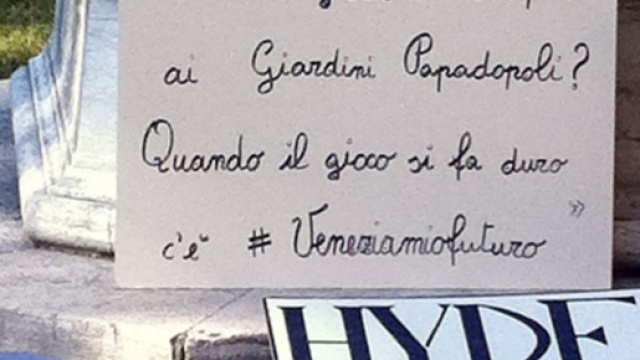 ai Giardini Papadopoli?
Quando il gioco si fa duro
c'è # Veneziamiofuturo »
HYDE